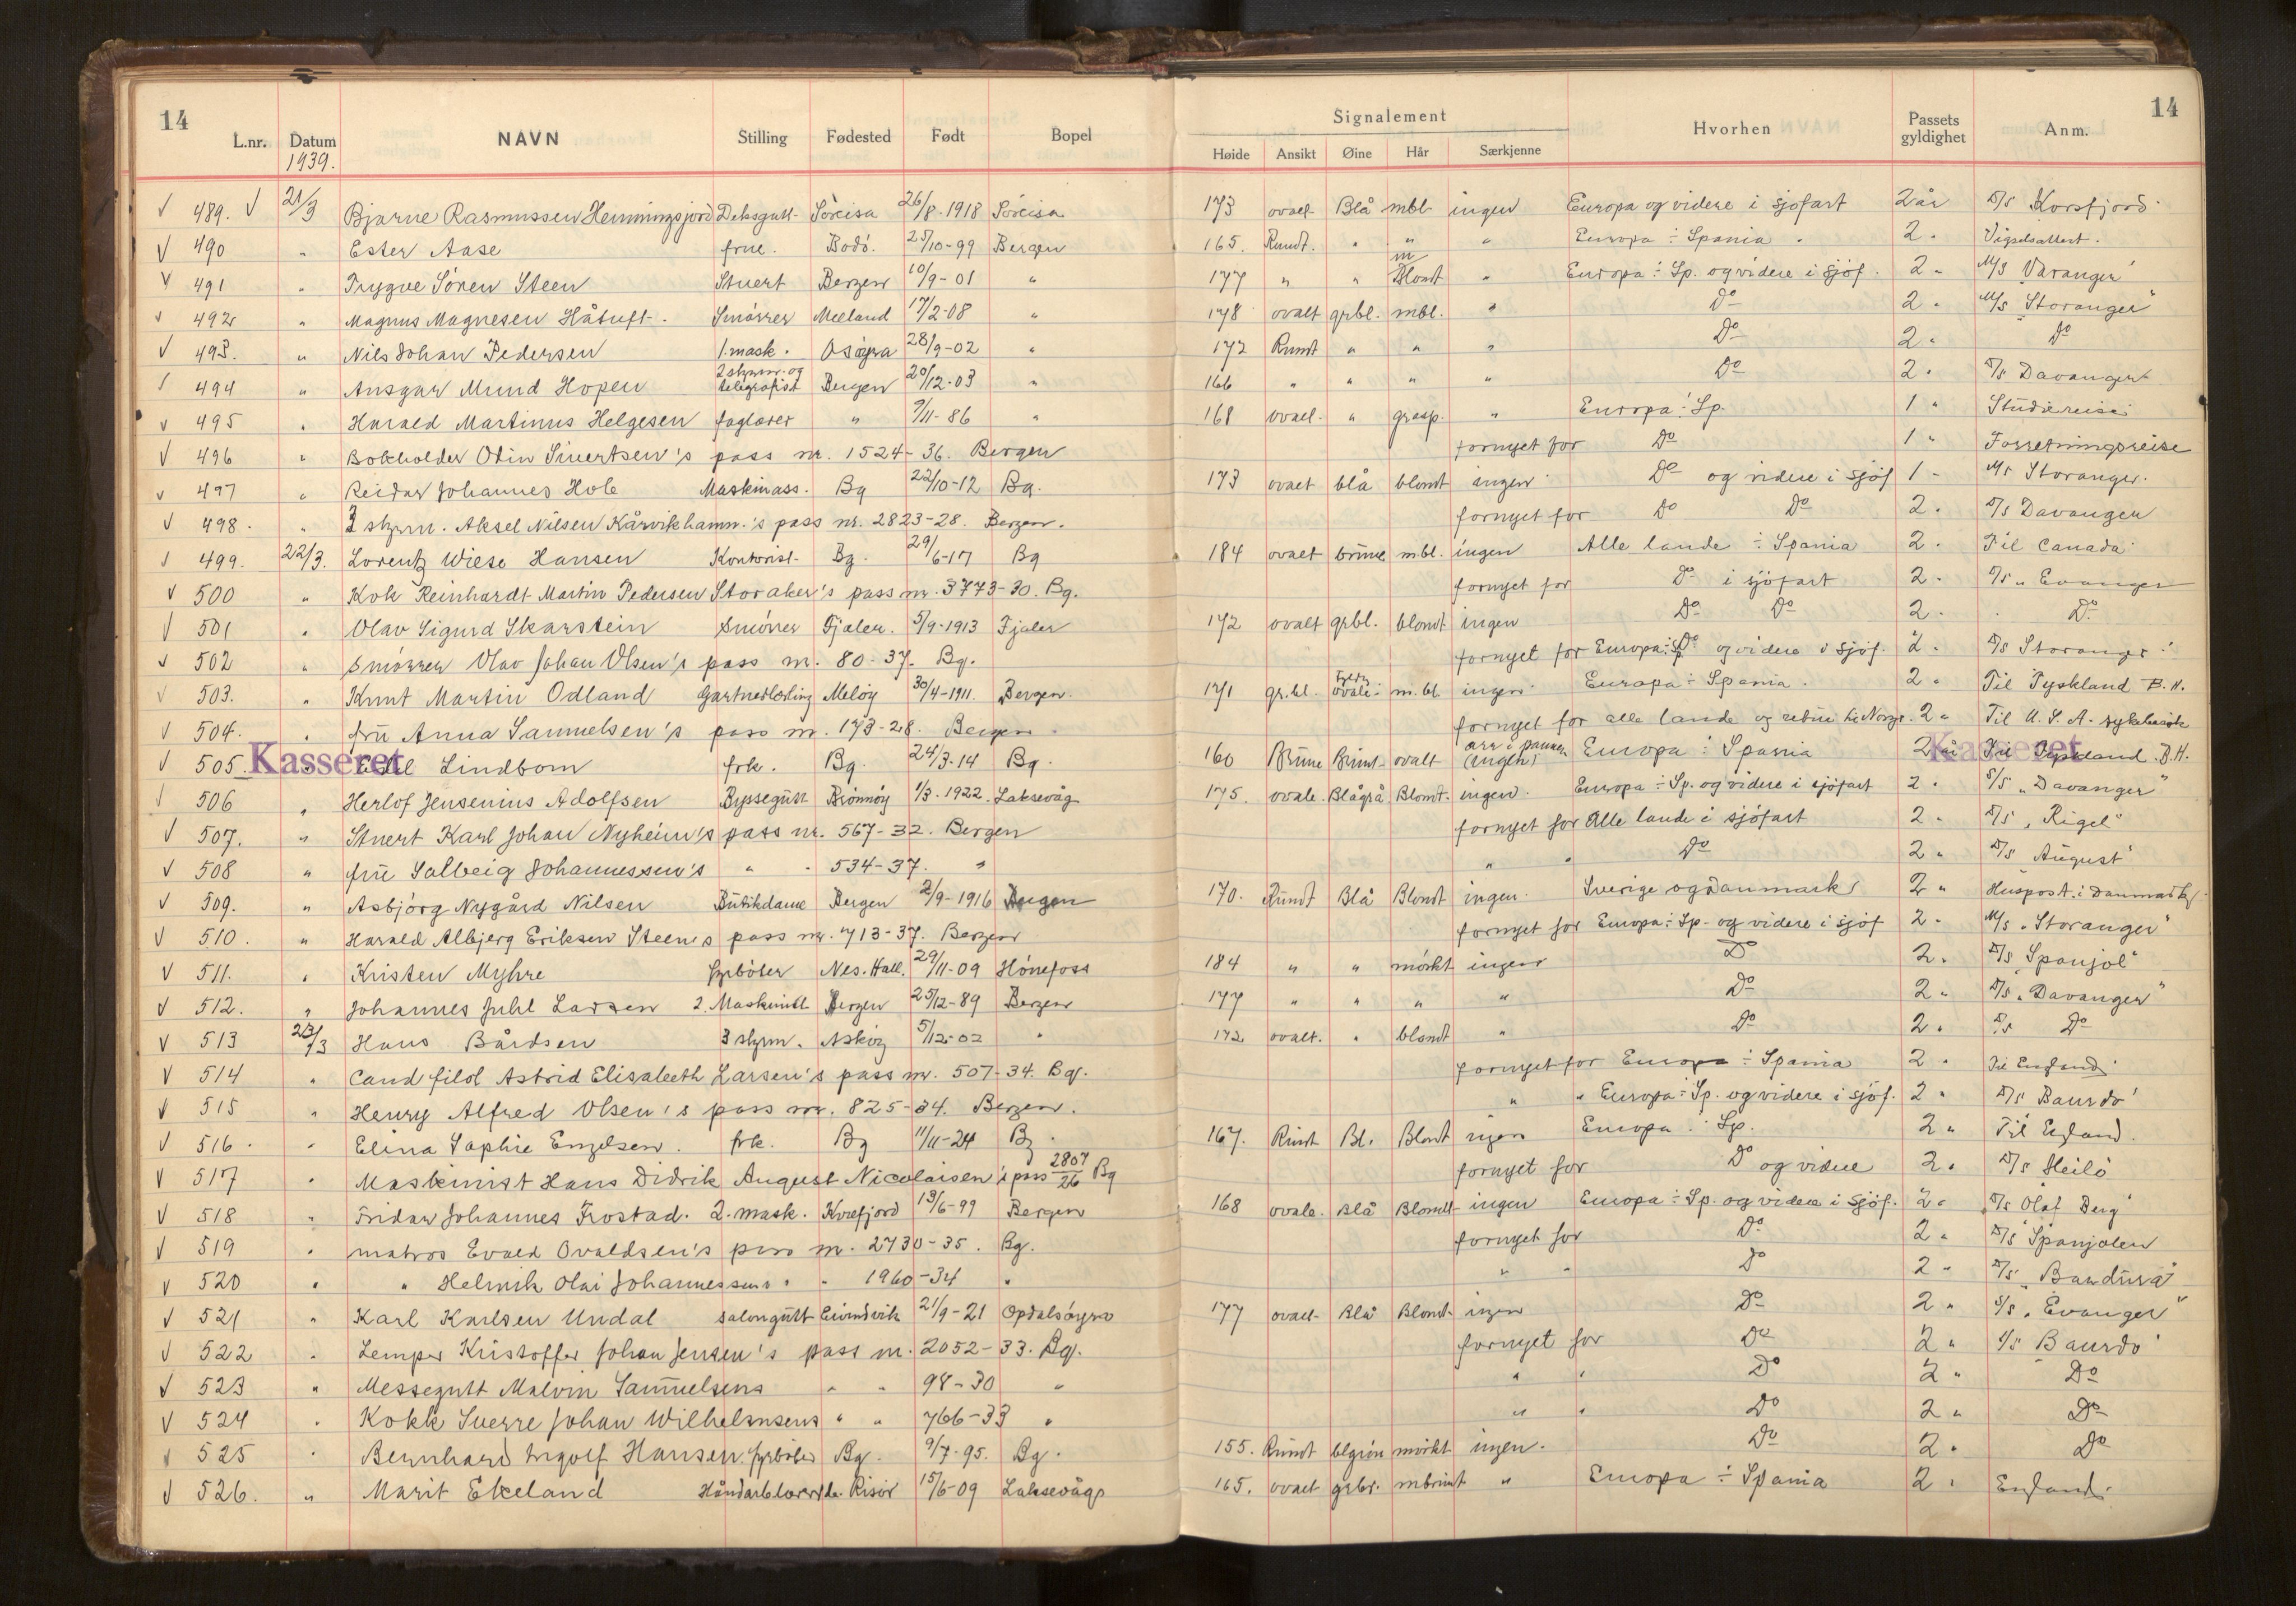 14 14
Signalement
L.nr. Datum NAVN Stilling Fødested Født Bopel Høide Ansikt Øine Hår Særkjenne Hvorhen Passets gyldighet Anm.
1939.
489. 21/3 Bjarne Rasmussen Henningsjord Deksgutt Söreisa 26/8-1918 Söreisa 173 ovalt Blå mbl ingen Europa og videre i sjøfart 2 år D/S Korsfjord
490 " Ester Aase frue. Bodö. 25/10-99 Bergen 165. Rundt. " " " Europa ÷ Spania. 2 " Vigselsattest.
491 " Trygve Sören Steen Stuert Bergen 10/9-01 " 177 " " m Blondt " Europa ÷ Sp. og videre i sjöf. 2 " M/S Varanger
492 " Magnus Magnesen Håtuft. Smörer Meland 17/2-08 " 178 ovalt grbl. mbl. " Do 2 " M/S "Storanger"
493. " Nils Johan Pedersen 1. mask. Osöyra 28/9-02 " 172 Rundt " " " Do 2 " Do
494 " Ansgar Mund Hopen 2 styrm. og telegrafist Bergen 20/12-03 " 166 " " " " Do 2 " D/S Davanger
495 " Harald Martinus Helgesen faglærer " 9/11-86 " 168 ovalt " " Europa ÷ Sp. 1 " Studiereise
496 " Bokholder Odin Sivertsen's pass nr. 1524-36. Bergen fornyet for Do 1 " Forretningsreise
497 " Reidar Johannes Hole Maskinass. Bg 22/10-12 Bg. 173 ovalt blå blondt ingen Do og videre i sjöf 1 - M/S Storanger.
498. " 3 styrm. Aksel Nilsen Kårvikhamn.'s pass nr. 2823-28. Bergen. fornyet for Do Do 2. D/S Davanger
499. 22/3. Lorentz Wiese Hansen Kontorist Bg. 29/6-17 Bg 184 ovalt brune mbl. ingen Alle lande ÷ Spania 2. Til Canada
500 " Kok Reinhardt Martin Pedersen Storaker's pass nr. 3773-30. Bg. fornyet for Do i sjöfart 2. D/S "Evanger
501 " Olav Sigurd Skarstein Smörer Fjaler. 5/9-1913 Fjaler 172 ovalt grbl. blondt ingen Do Do 2. Do
502 " Smörer Olav Johan Olsen's pass nr. 80-37. Bg. fornyet for Europa ÷ Sp og videre i sjöf. 2. D/S Storanger
503. " Knut Martin Odland Gartnerlærling Melöy 30/4-1911. Bergen. 171 gr.bl. ovalt m.bl. ingen Europa ÷ Spania. 2. Til Tyskland B.H.
504. " fru Anna Samuelsen's pass nr. 173-28. Bergen fornyet for alle lande og retur til Norge. 2 " Til U.S.A. sykebesök
505. Kasseret Lindbom frk. Bg. 24/3-14 Bg. 160 Brune Brunt ovalt arr i pannen (ingen) Europa ÷ Spania 2 Kasseret Til Tyskland B.H.
506 " Herlof Jensenius Adolfsen Byssegutt Brönnöy 1/3-1922. Laksevåg 175. ovale. Blågrå Blondt. ingen. Europa ÷ Sp. og videre i sjöfart 2. S/S "Davanger"
507. " Stuert Karl Johan Nyheim's pass nr. 567-32. Bergen fornyet for Alle lande i sjöfart 2. D/S "Rigel"
508 " fru Salbeig Johannessen's " " 534-37. " " " Do 2 " D/S August
509. " Asbjörg Nygård Nilsen Butikdame Bergen 2/9-1916 Bergen 170. Rundt Blå Blondt ingen. Sverige og Danmark 2 " Huspost. i Danmark
510. " Harald Albjerg Eriksen Steen's pass nr. 713-37. Bergen fornyet for Europa ÷ Sp. og videre i sjöf 2. M/S "Storanger"
511. " Kristen Myhre fyrböter Nes. Hall. 29/11-09 Hönefoss 184 " " mörkt ingen Do 2. D/S Spanjol"
512. " Johannes Juhl Larsen 2. Maskinist Bergen 25/12-89 Bergen 177 " " " " Do 2 " D/S "Davanger"
513 23/3 Hans Bårdsen 3 styrm. Asköy 5/12-02 " 172 ovalt. " blondt " Do 2. D/S Do
514 " Cand filol Astrid Elisabeth Larsen's pass nr. 507-34. Bg. fornyet for Europa ÷ Spania 2 " Til England.
515 " Henry Alfred Olsen's pass nr. 825-34. Bergen. " " Europa ÷ Sp. og videre i sjöf. 2 " D/S Baurdo'
516. " Elina Sophie Engelsen. frk. Bg 11/11-24 Bg. 167. Rundt Bl. Blondt ingen Europa ÷ Sp. 2 " Til England.
517 " Maskinist Hans Didrik August Nicolaisen's pass 2807/26 Bg fornyet for Do og videre 2. D/S Heilö
518 " Fridar Johannes Frostad. 2. mask. Korsfjord 13/6-99 Bergen 168 ovale. Blå Blondt ingen Europa ÷ Sp. og videre i sjöf. 2. D/S Olaf Berg
519 " matros Evald Ovaldsen's pass nr. 2730-35. Bg. fornyet for Do 2. D/S Spanjolen
520 " " Helmik Olai Johannessens " " 1960-34 " " " Do 2 " D/S "Bandura"
521 " Karl Karlsen Undal salongutt Eivindvik 21/9-21 Opdalsöyro 177 ovalt Blå Blondt ingen Do 2 " S/S "Evanger"
522 " Lemper Kristoffer Johan Jensen's pass nr. 2052-33. Bg. fornyet for Do 2 " S/S Baurdo'
523 " Messegutt Malvin Samuelsens " " 98-30 " " " Do 2 " Do
524 " Kokk Sverre Johan Wilhelmsens " " 766-33 " " " Do 2 " Do
525 " Bernhard Ingolf Hansen. fyrböter Bg. 9/7-95. Bg. 155. Rundt blgrön mörkt ingen. Do 2. Do
526. " Marit Ekeland Risör 15/6-09 Laksevåg 165. ovalt grbr. mbrunt " Europa ÷ Spania 2. England.